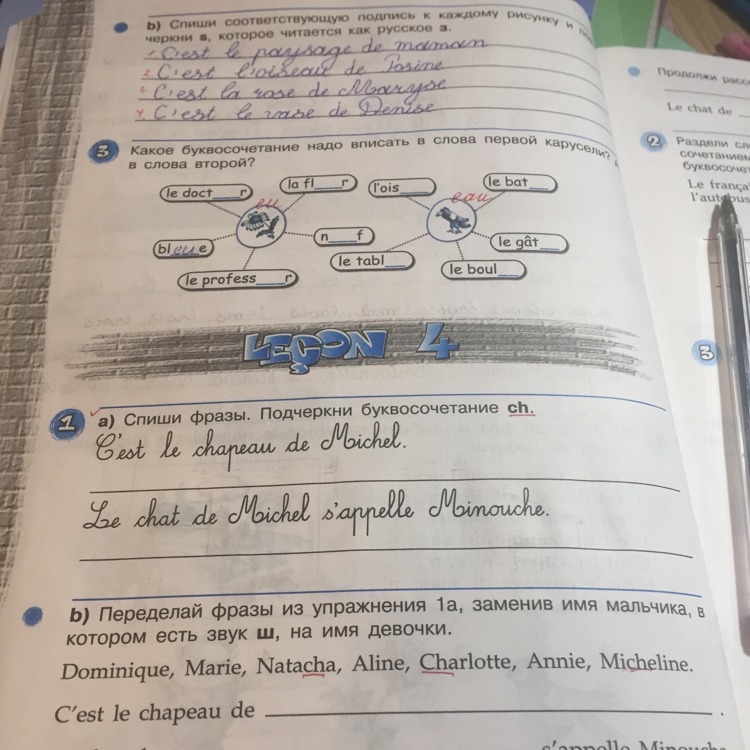 b) Спиши соответствующую подпись к каждому рисунку и
черкни s, которое читается как русское з.
1. C'est le paysage de maman
2. C'est l'oiseau de
3. C'est la rose de Maryse
4. C'est le vase de Denise
3 Какое буквосочетание надо вписать в слова первой карусели?
в слова второй?
le doct___r
la fl___r
l'ois___
le bat___
eu
eau
bleue
n___f
le gât___
le tabl___
le profess___r
le boul___
LEÇON 4
1 a) Спиши фразы. Подчеркни буквосочетание ch.
C'est le chapeau de Michel.
Le chat de Michel s'appelle Minouche.
b) Переделай фразы из упражнения 1а, заменив имя мальчика, в
котором есть звук ш, на имя девочки.
Dominique, Marie, Natacha, Aline, Charlotte, Annie, Micheline.
C'est le chapeau de ___.
s'appelle Minouche
Продолжи
Le chat de
2 Раздели
3